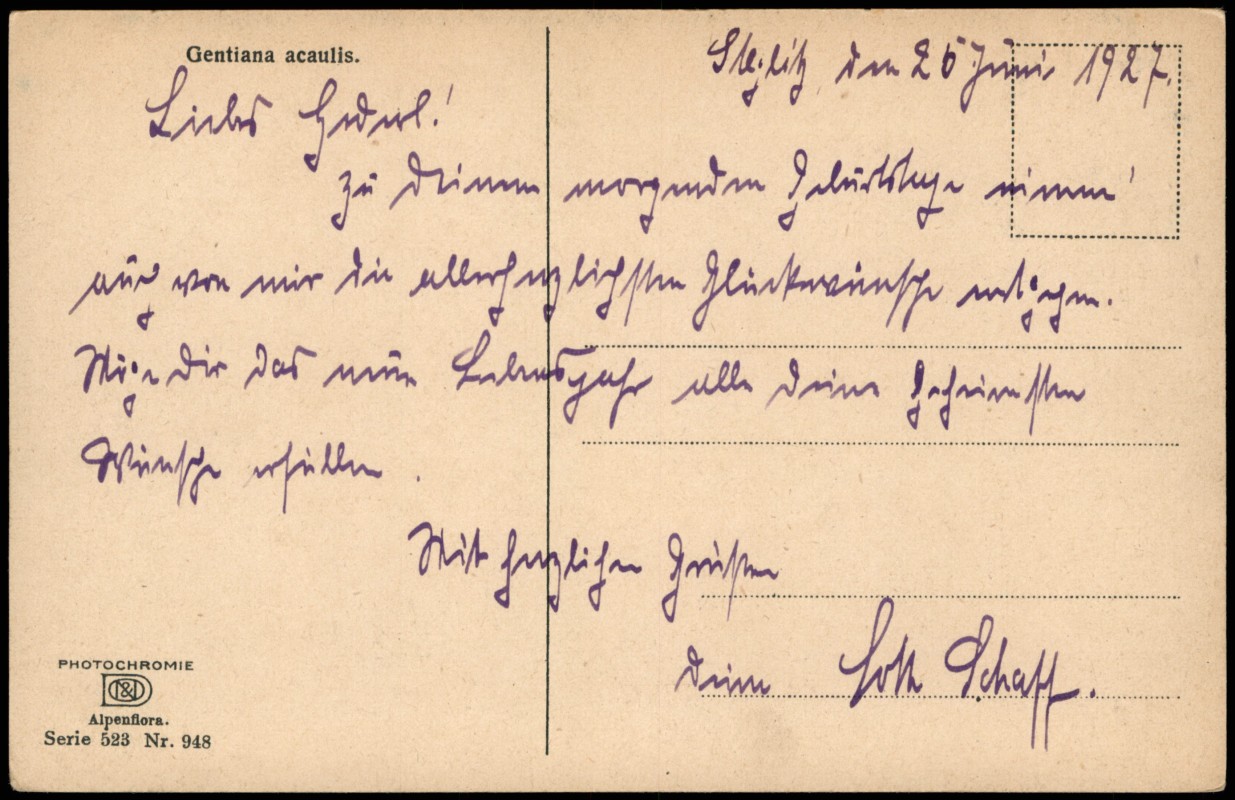 Gentiana acaulis.
Steglitz, den 26 Juni 1927.
Liebes Hederl!
zu Deinem morgenden Geburtstage nimm'
auch von mir die allerherzlichsten Glückwünsche entgegen.
Möge Dir das neue Lebensjahr alle Deine Geheimsten
Wünsche erfüllen.
Mit herzlichen Grüßen
Dein Schaff.
PHOTOCHROMIE
Alpenflora.
Serie 523 Nr. 948